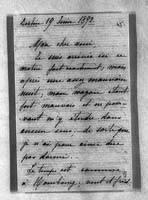 Berlin 19 Juin 1892
Mon cher ami,
Je suis arrivé ici ce
matin fort mais
après une assez mauvaise
nuit, mon wagon étant
fort mauvais et ne pou-
vant m'y étendre dans
aucun sens, de sorte que
je n'ai pour ainsi dire
pas dormi.
Le temps est comme
à Hambourg, vent et frais